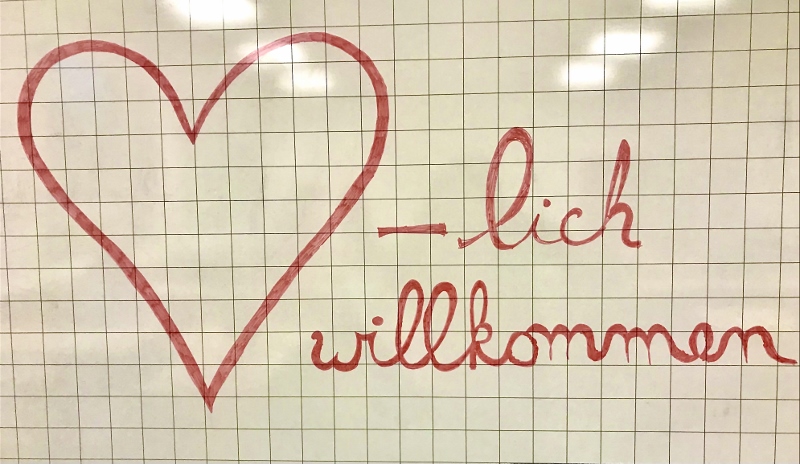 – lich
willkommen